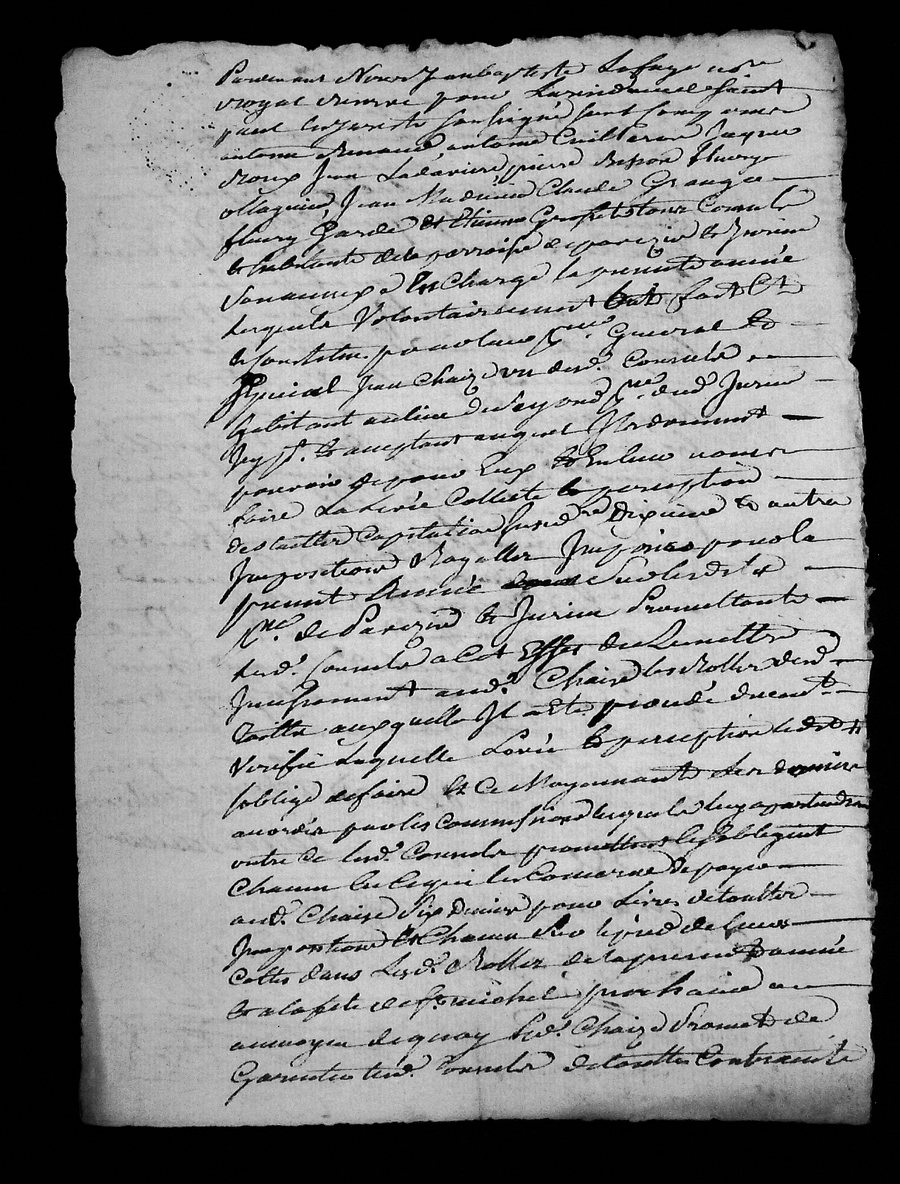 Pardevant Nous Jean baptiste Lafaye no.re
royal reservé pour la residance de Saint
paul en jarest soussigné sont comparus
antoine Renaud, antoine Cuilleron Jaques
Roux Jean Ladavière, pierre Besson fleurye
ollagnier Jean Claude Grange
fleury Garde Et Etienne tous Consuls
& habitants de la parroisse de parezin & Jurieu
Son annexe En Charge la presente année
Lesquels Volontairement ont fait Et
Constitué pour leur p.eur General &
special Jean Chaize un desd. Consuls
habitant au lieu de dud. Jurieu
Icy p.t & acceptant auquel Ils donnent
pouvoir de pour Eux & En leur noms
faire La Levée Collecte & perception
des tailles Capitation Dixieme & autres
Impositions Royalles Imposées pour la
presente Année Sur les dits
p.sse de Parezin & Jurieu Promettants
Lesd. Consuls a Cet Effet de Remettre
Incessament aud. Chaize les Rolles desd.
Tailles auxquelles Il a Eté procédé
verifié laquelle Levée & perception led.
s'oblige de faire Et Ce Moyennant les deniers
accordés par les Commissions lesquels luy apartiendront
outre Ce lesd. Consuls promettent & s'obligent
Chacun En Ce qui les Concerne de payer
aud. Chaize Six Deniers pour Livres de touttes
Impositions Et Chacun Sur le pied de Leurs
Cottes dans Lesd. Rolles de la presente année
& a la fete de St. michel prochaine au
moyen de quoy led. Chaize Promet de
Garentir lesd. Consuls de touttes Contrainte